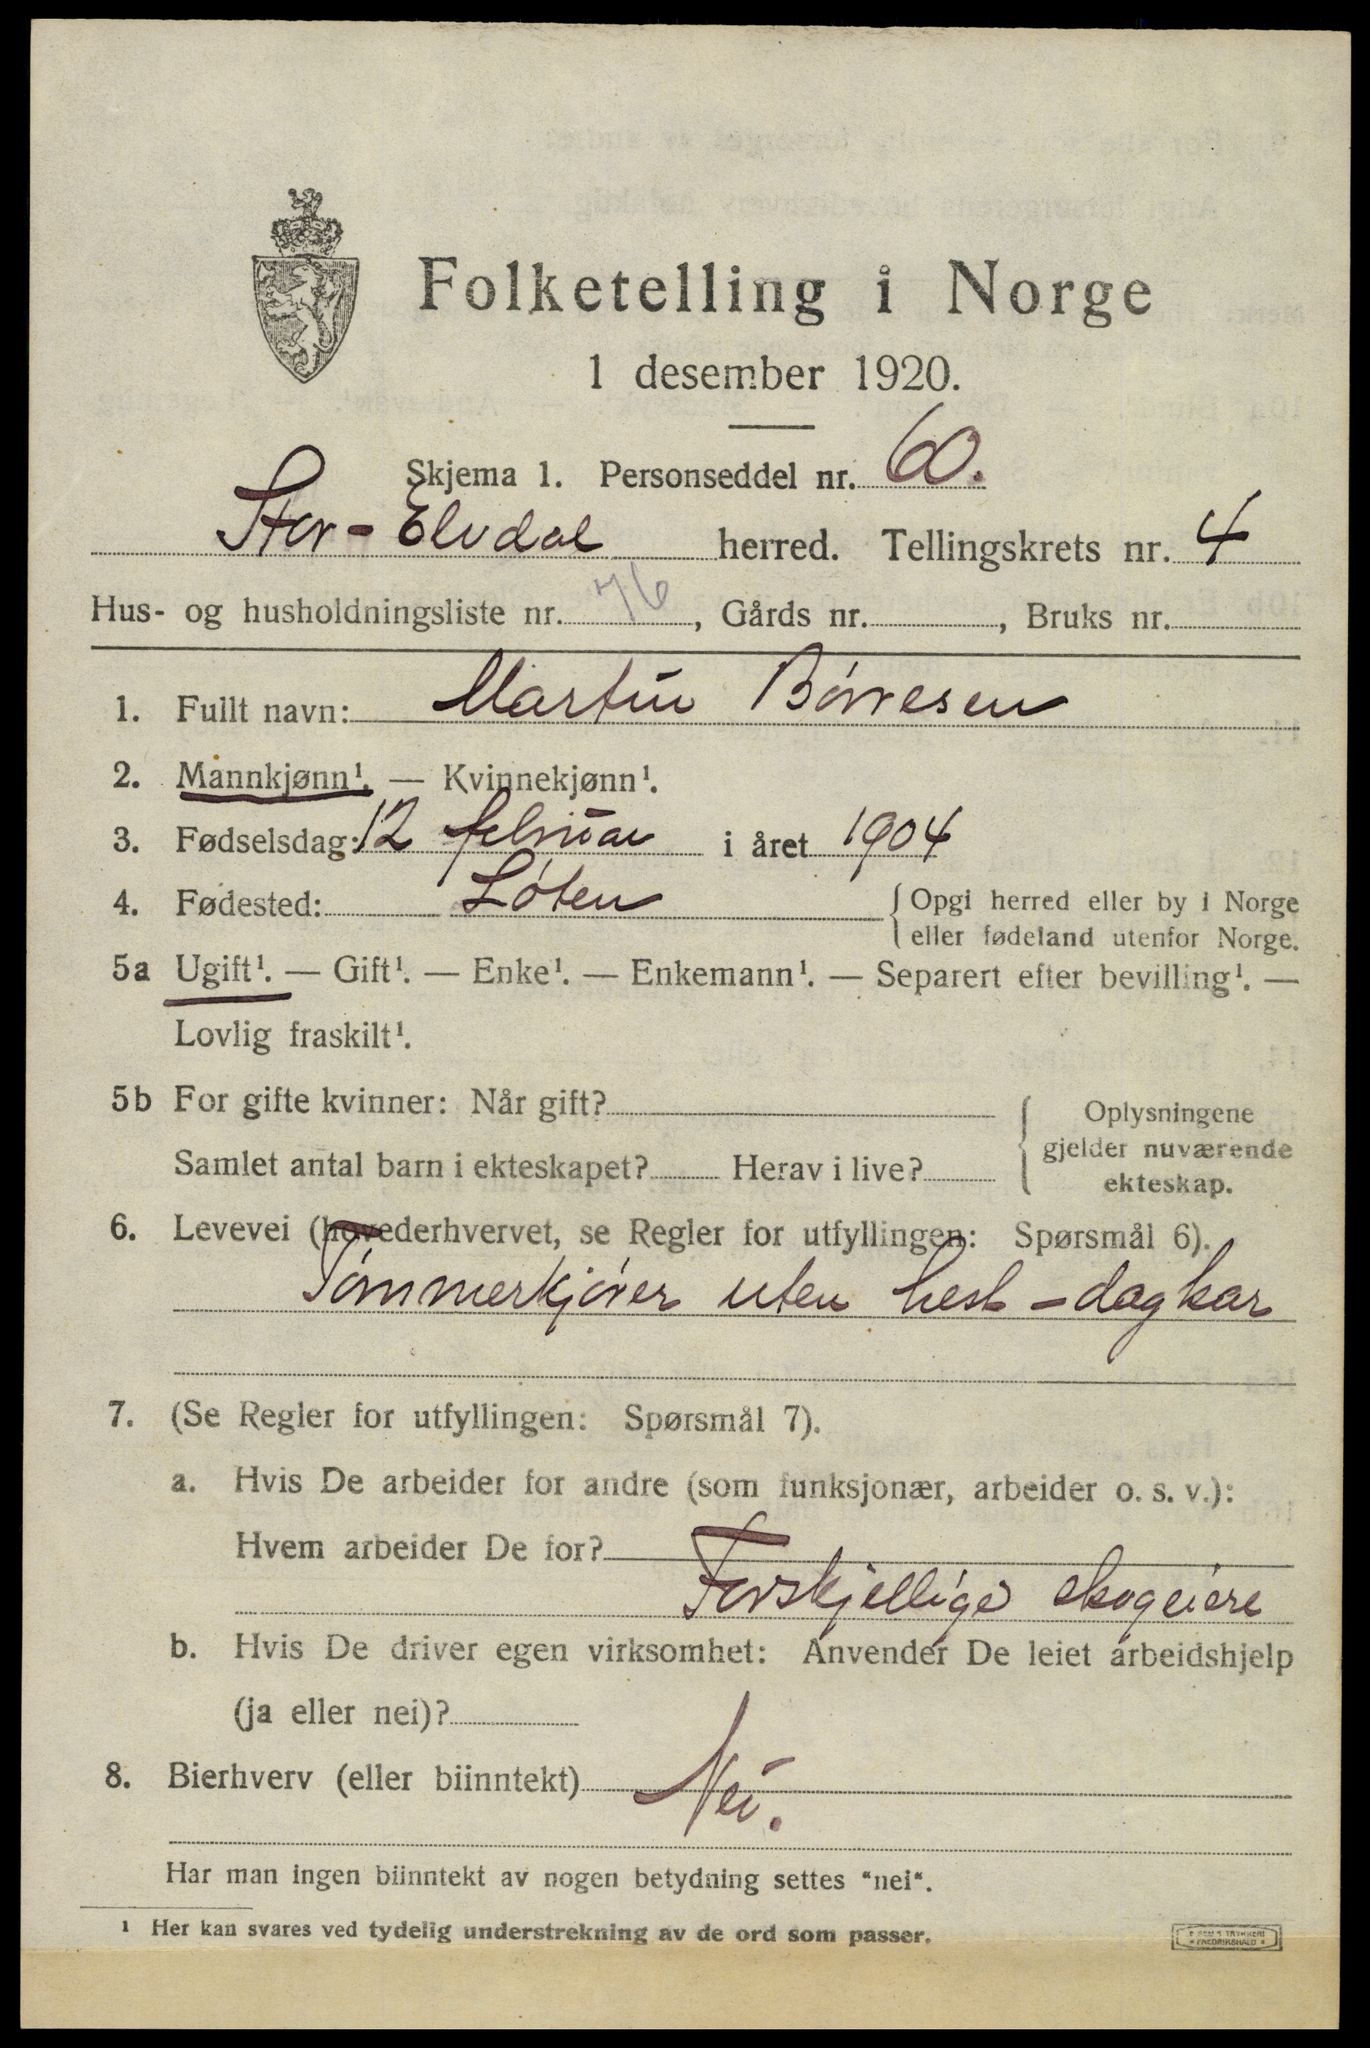 Folketelling i Norge
1 desember 1920.
Skjema 1. Personseddel nr. 60.
Stor-Elvdal herred. Tellingskrets nr. 4
Hus- og husholdningsliste nr. 76, Gårds nr. , Bruks nr.
1. Fullt navn: Martin Børresen
2. Mannkjønn¹. — Kvinnekjønn¹.
3. Fødselsdag: 12 februar i året 1904
4. Fødested: Løten { Opgi herred eller by i Norge
eller fødeland utenfor Norge.
5a Ugift¹. — Gift¹. — Enke¹. — Enkemann¹. — Separert efter bevilling¹. —
Lovlig fraskilt¹.
5b For gifte kvinner: Når gift? { Oplysningene
gjelder nuværende
Samlet antal barn i ekteskapet? Herav i live?
ekteskap.
6. Levevei (hovederhvervet, se Regler for utfyllingen: Spørsmål 6).
Tømmerkjører uten hest - dagkar
7. (Se Regler for utfyllingen: Spørsmål 7).
a. Hvis De arbeider for andre (som funksjonær, arbeider o. s. v.):
Hvem arbeider De for?
Forskjellige skogeiere
b. Hvis De driver egen virksomhet: Anvender De leiet arbeidshjelp
(ja eller nei)?
8. Bierhverv (eller biinntekt) Nei.
Har man ingen biinntekt av nogen betydning settes "nei".
¹ Her kan svares ved tydelig understrekning av de ord som passer.